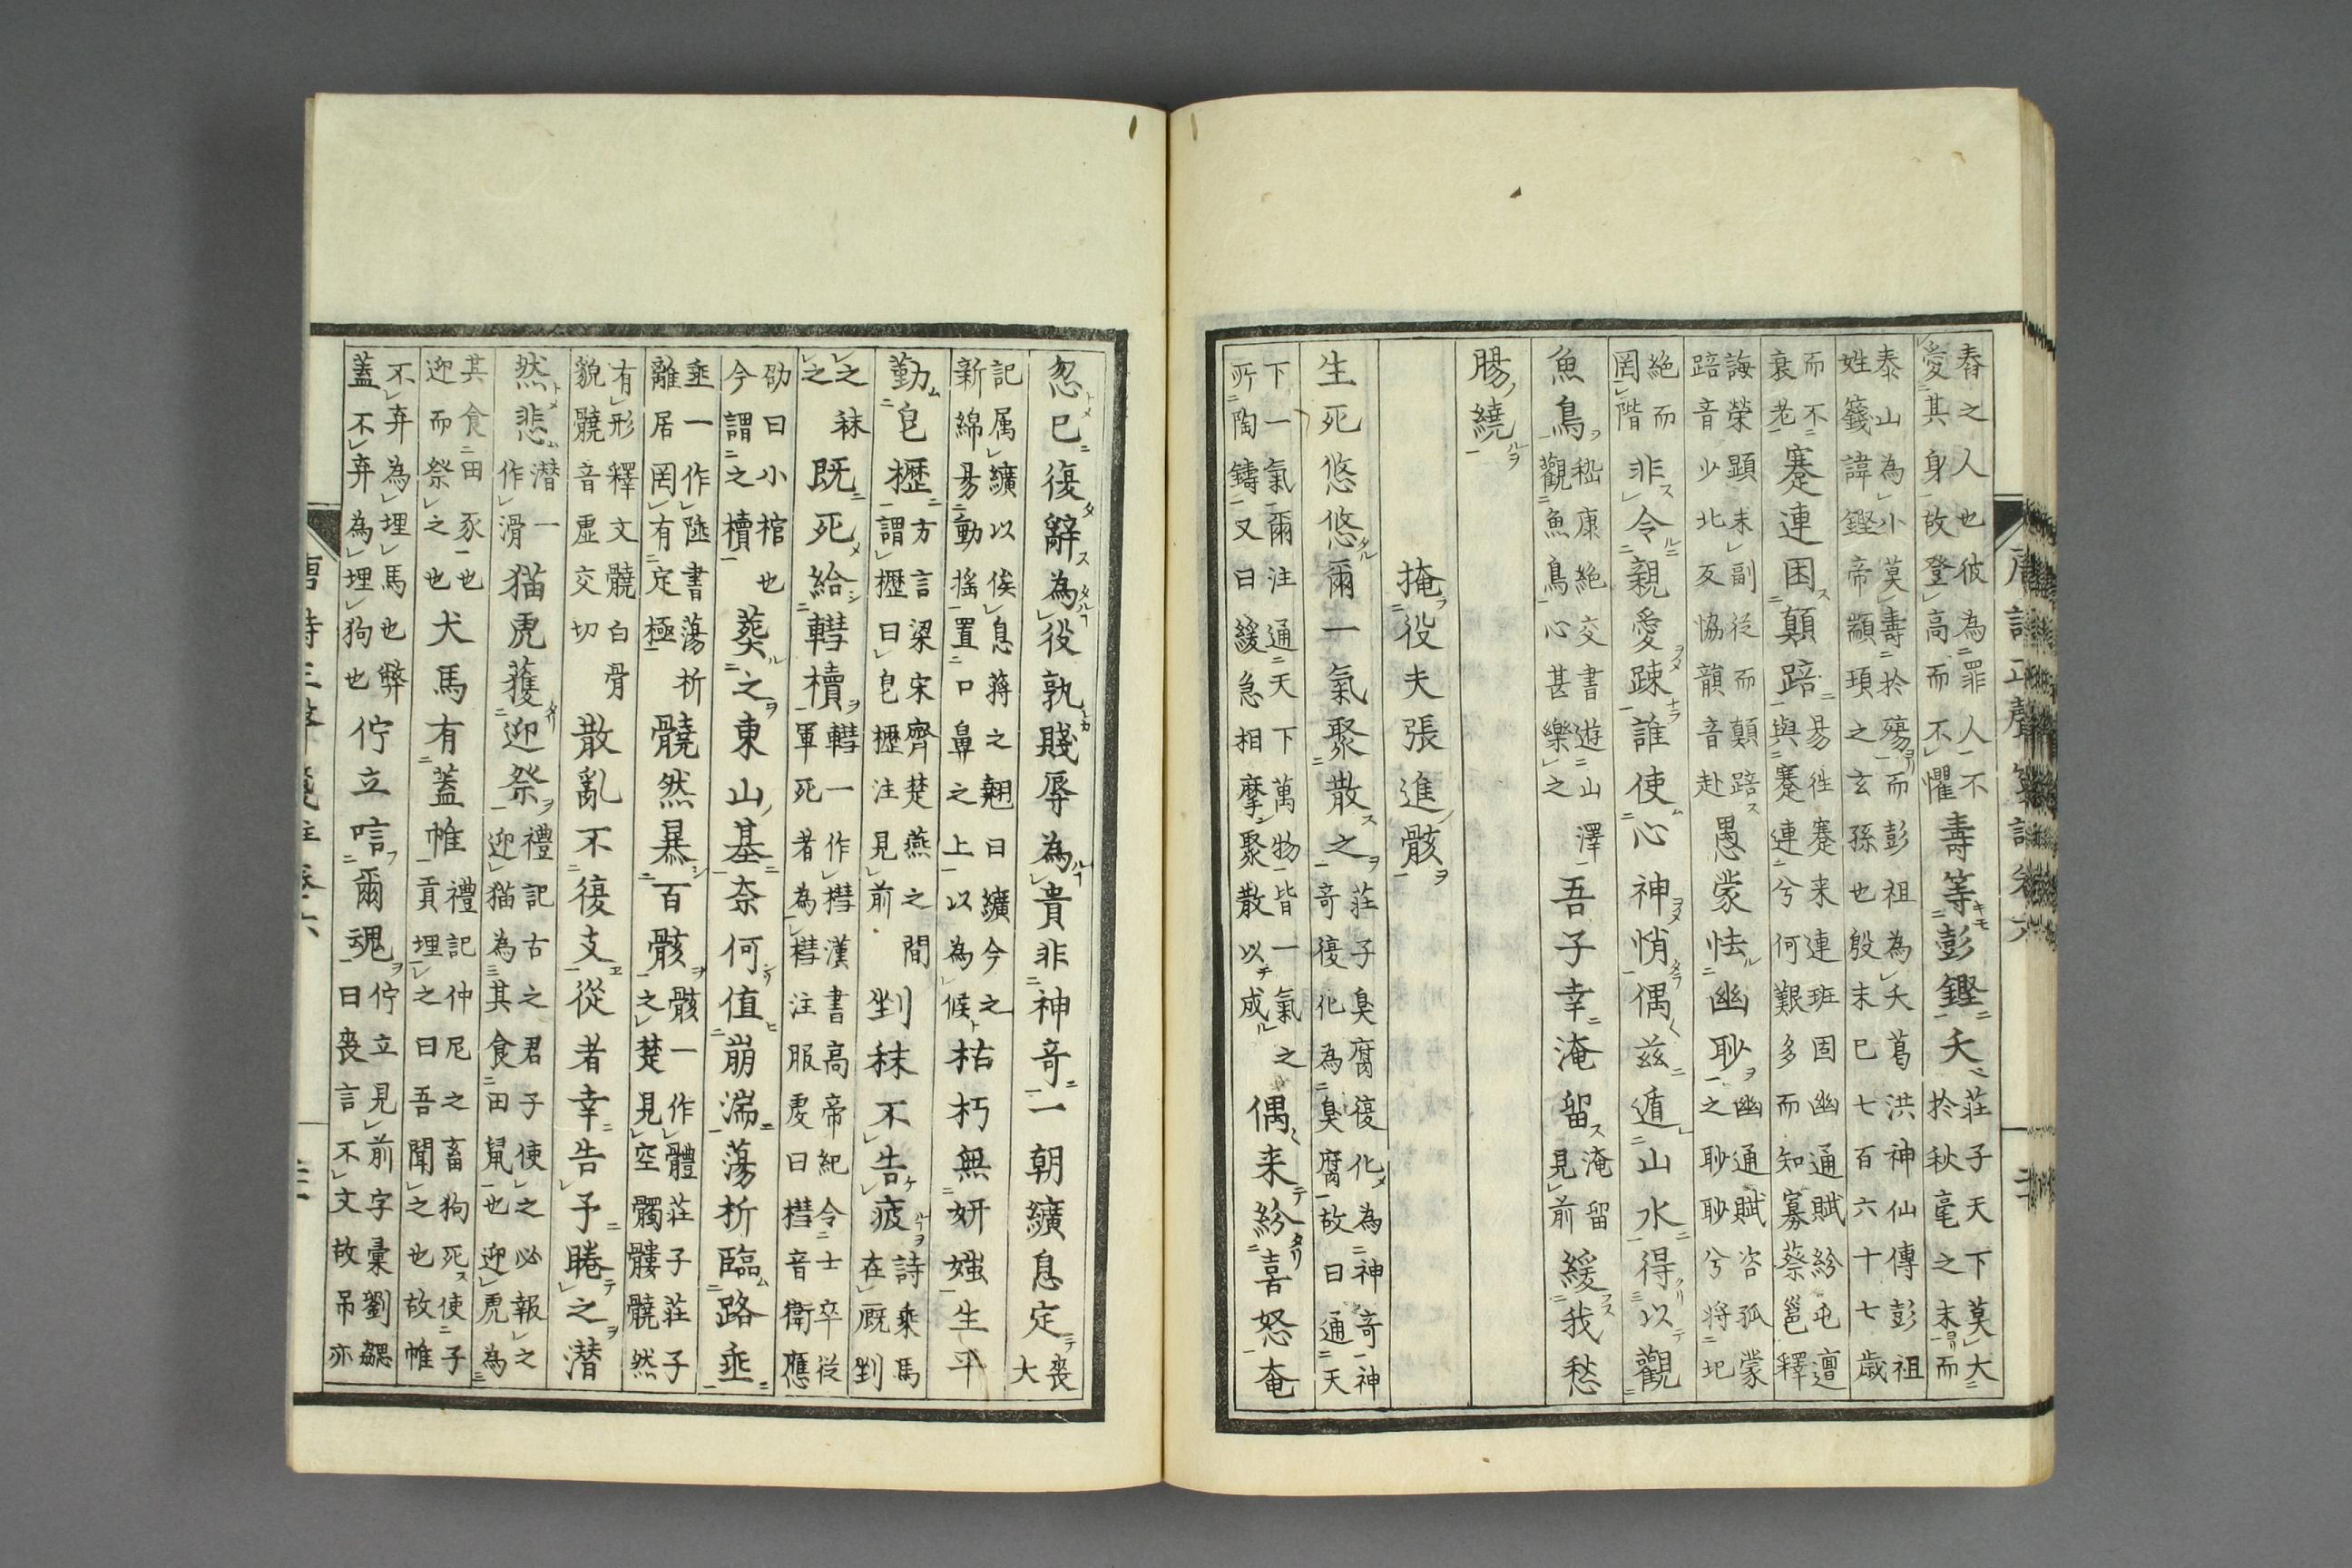 舂之人也彼為罪人不
愛其身故登高而不懼
壽等彭鏗夭
莊子天下莫大
於秋毫之末而
泰山為小莫壽於殤而彭祖為夭葛洪神仙傳彭祖
姓籛諱鏗帝顓頊之玄孫也殷末已七百六十七歲
而不
衰老
蹇連困顛踣
易徃蹇来連班固幽通賦紛屯邅
與蹇連兮何艱多而知寡蔡邕釋
誨榮顕未副從而顛踣
踣音少北反協韻音赴
愚蒙怯幽眇
幽通賦咨孤蒙
之眇眇兮将圮
絶而
罔階
非令親愛踈誰使心神悄偶茲遁山水得以觀
魚鳥
嵇康絶交書遊山澤
觀魚鳥心甚樂之
吾子幸淹留
淹留
見前
緩我愁
腸繞
掩役夫張進骸
生死悠悠爾一氣聚散之
莊子臭腐復化為神奇神
奇復化為臭腐故曰通天
下一氣爾注通天下萬物皆一氣之
所陶鑄又曰緩急相摩聚散以成
偶来紛喜怒奄
忽已復辭為役孰賤辱為貴非神奇一朝纊息定
喪
大
記属纊以俟息蒋之翹曰纊今之
新綿易動揺置口鼻之上以為候
枯朽無妍媸生平
勤皂櫪
方言梁宋齊楚燕之間
謂櫪曰皂櫪注見前
剉秣不告疲
詩乗馬
在厩剉
之秣
之
既死給轊櫝
轊一作槥漢書高帝紀令士卒從
軍死者為槥注服虔曰槥音衛應
劭曰小棺也
今謂之櫝
葬之東山基奈何値崩湍蕩析臨路垂
垂一作陲書蕩析
離居罔有定極
髐然暴百骸
骸一作體莊子莊子
之楚見空髑髏髐然
有形釋文髐白骨
貌髐音虚交切
散亂不復支從者幸告予睠之潜
然悲
潜一
作滑
猫虎獲迎祭
禮記古之君子使之必報之
迎猫為其食田鼠也迎虎為
其食田豕也
迎而祭之也
犬馬有蓋帷
禮記仲尼之畜狗死使子
貢埋之曰吾聞之也故帷
不弃為埋馬也弊
蓋不弃為埋狗也
佇立唁爾魂
佇立見前字彙劉勰
曰喪言不文故吊亦